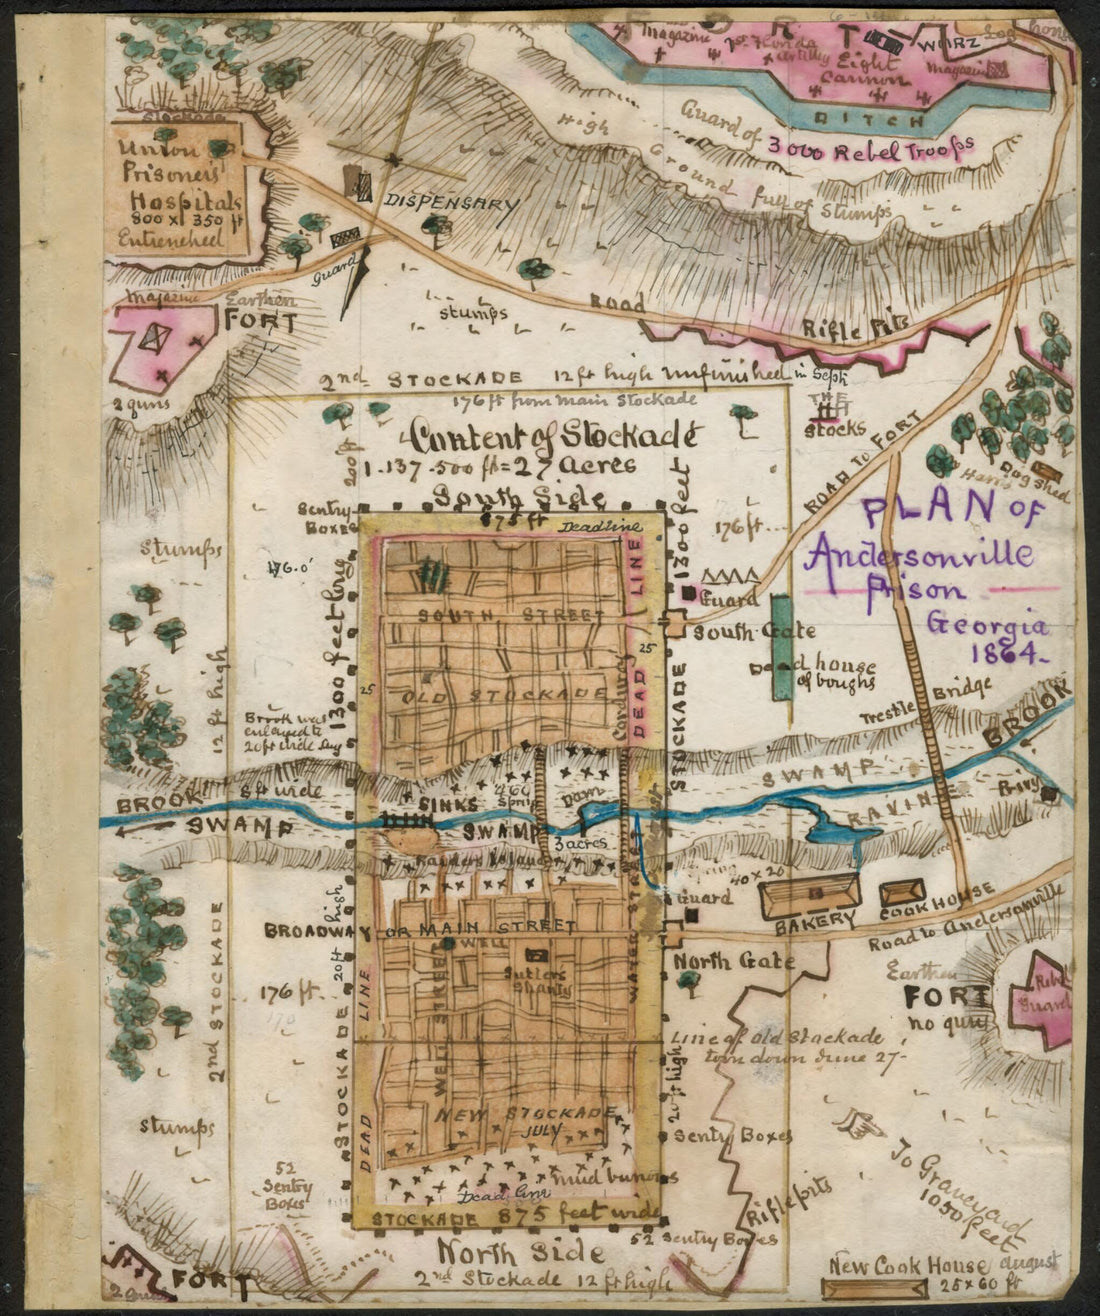 FORT
Magazine
1st Florida
Artillery
Eight
Cannon
WURZ
Log
Magazin
DITCH
Guard of
3000 Rebel Troops
High
Ground full of Stumps
Stockade
Union
Prisoners
Hospitals
800 x 350 ft
Entrenched
DISPENSARY
Guard
Magazine
Earthen
FORT
2 guns
stumps
Road
Rifle Pits
2nd STOCKADE 12 ft high Unfinished in Sept
176 ft from main Stockade
THE
Stocks
ROAD TO FORT
Harris Dog Shed
Content of Stockade
1.137.500 ft = 27 Acres
South Side
200 ft
Sentry
Boxes
875 ft
Deadline
1300 feet
176 ft
PLAN OF
Andersonville
Prison
Georgia
1864-
Stumps
176.0'
Guard
South Gate
Dead house
of boughs
SOUTH STREET
OLD STOCKADE
DEAD LINE
25
25
Corduroy
STOCKADE
1300 feet long
12 ft high
Brook was
enlarged to
20 ft wide
Trestle
Bridge
BROOK
SWAMP
RAVINE
Privy
BROOK
5 ft wide
SWAMP
SINKS
Spring
Dam
SWAMP
3 acres
Raiders Island
40 x 20
Guard
BAKERY
COOK HOUSE
Road to Andersonville
BROADWAY OR MAIN STREET
WELL
Sutlers
Shanty
WATER STREET
WELL STREET
North Gate
20 ft high
2nd STOCKADE
176 ft
DEAD LINE
STOCKADE
Earthen
FORT
no guns
Rebel
Guard
Line of Old Stockade
torn down June 27-
20 ft high
NEW STOCKADE
JULY
Sentry Boxes
Stumps
52
Sentry
Boxes
Mud
Dead line
STOCKADE 875 feet wide
Rifle pits
To Graveyard
1050 feet
52 Sentry Boxes
North Side
2nd Stockade 12 ft high
FORT
2 Guns
New Cook House August
25 x 60 ft